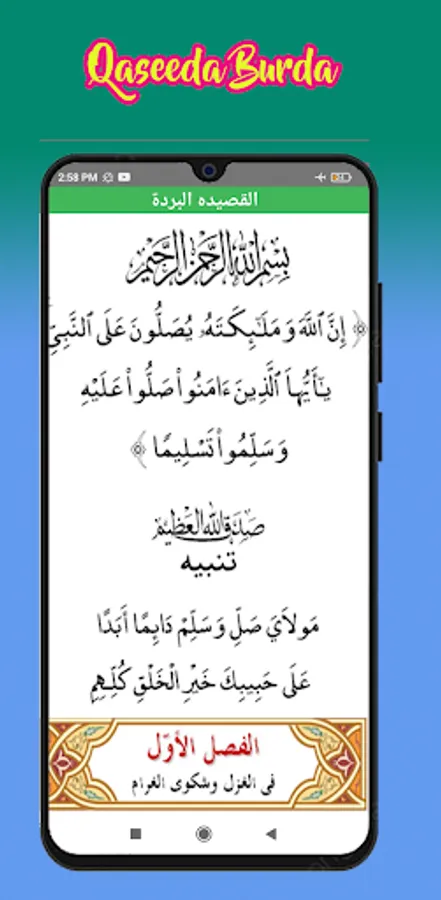 Qaseeda Burda
2:58 PM
القصيده البردة
بِسْمِ اللَّهِ الرَّحْمَنِ الرَّحِيمِ
﴿ إِنَّ ٱللَّهَ وَمَلَٰٓئِكَتَهُۥ يُصَلُّونَ عَلَى ٱلنَّبِيِّ
يَٰٓأَيُّهَا ٱلَّذِينَ ءَامَنُوا۟ صَلُّوا۟ عَلَيْهِ
وَسَلِّمُوا۟ تَسْلِيمًا ﴾
صَدَقَ اللهُ العَظِيْم
تنبيه
مَولَايَ صَلِّ وَسَلِّمْ دَايِمًا أَبَدًا
عَلَى حَبِيبِكَ خَيْرِ الْخَلْقِ كُلِّهِمِ
الفصل الأوّل
فى الغزل وشكوى الغرام